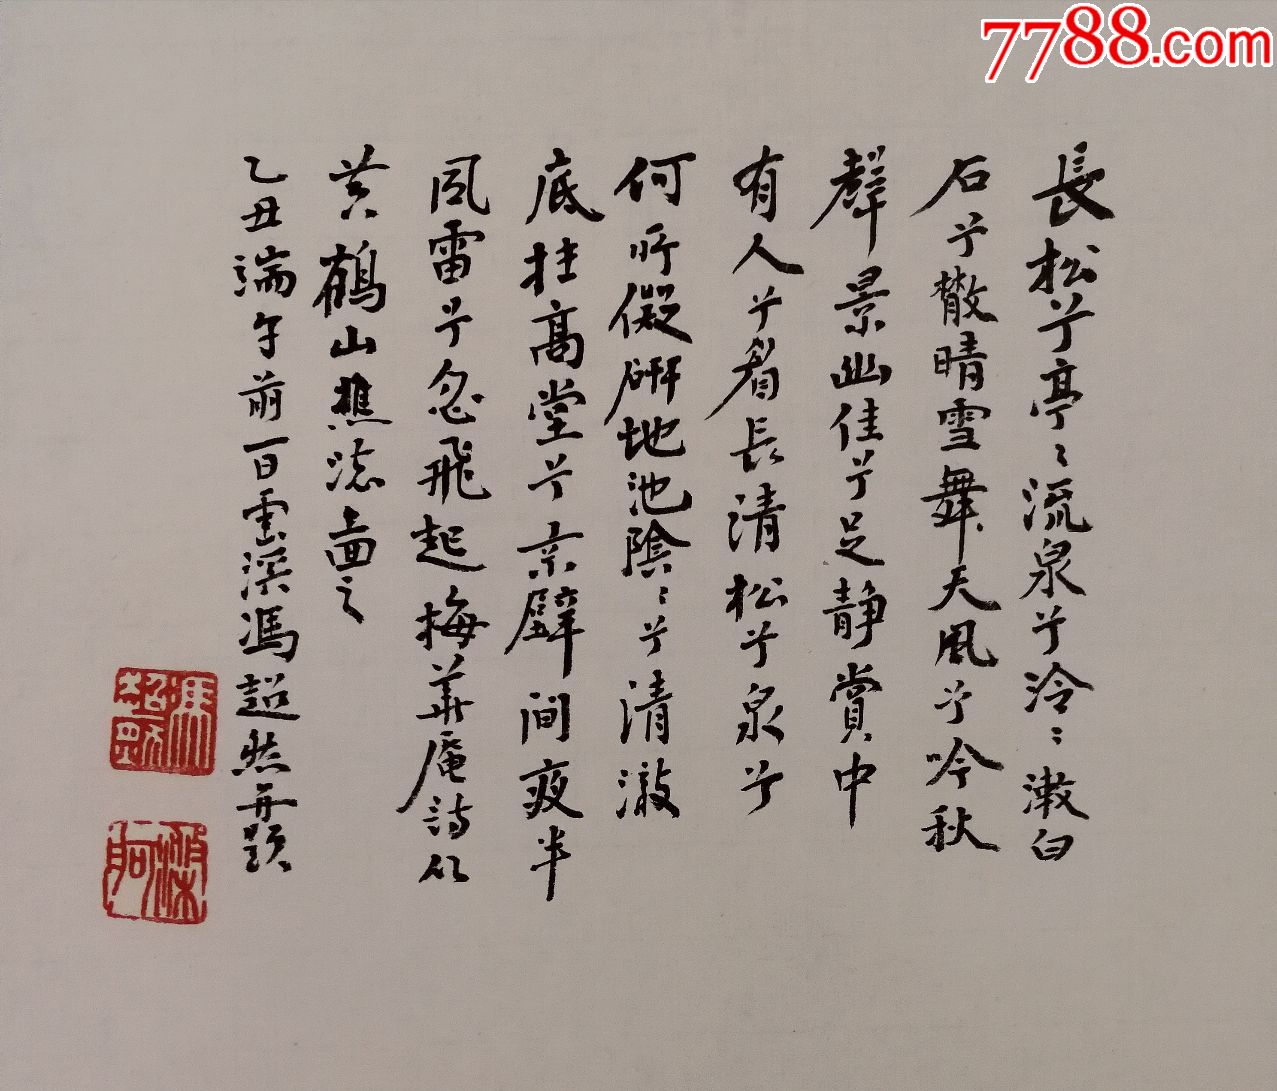 7788.com
長松兮亭〻流泉兮泠〻漱白
石兮散晴雪舞天風兮吟秋
聲景幽佳兮足靜賞中
有人兮眉長清松兮泉兮
何所儗研地池陰〻兮清澈
底挂高堂兮素壁間夜半
風雷兮忽飛起梅華庵詩以
黃鶴山樵法畫之
乙丑端午前一日雲溪馮超然再題
馮超然
滌舸